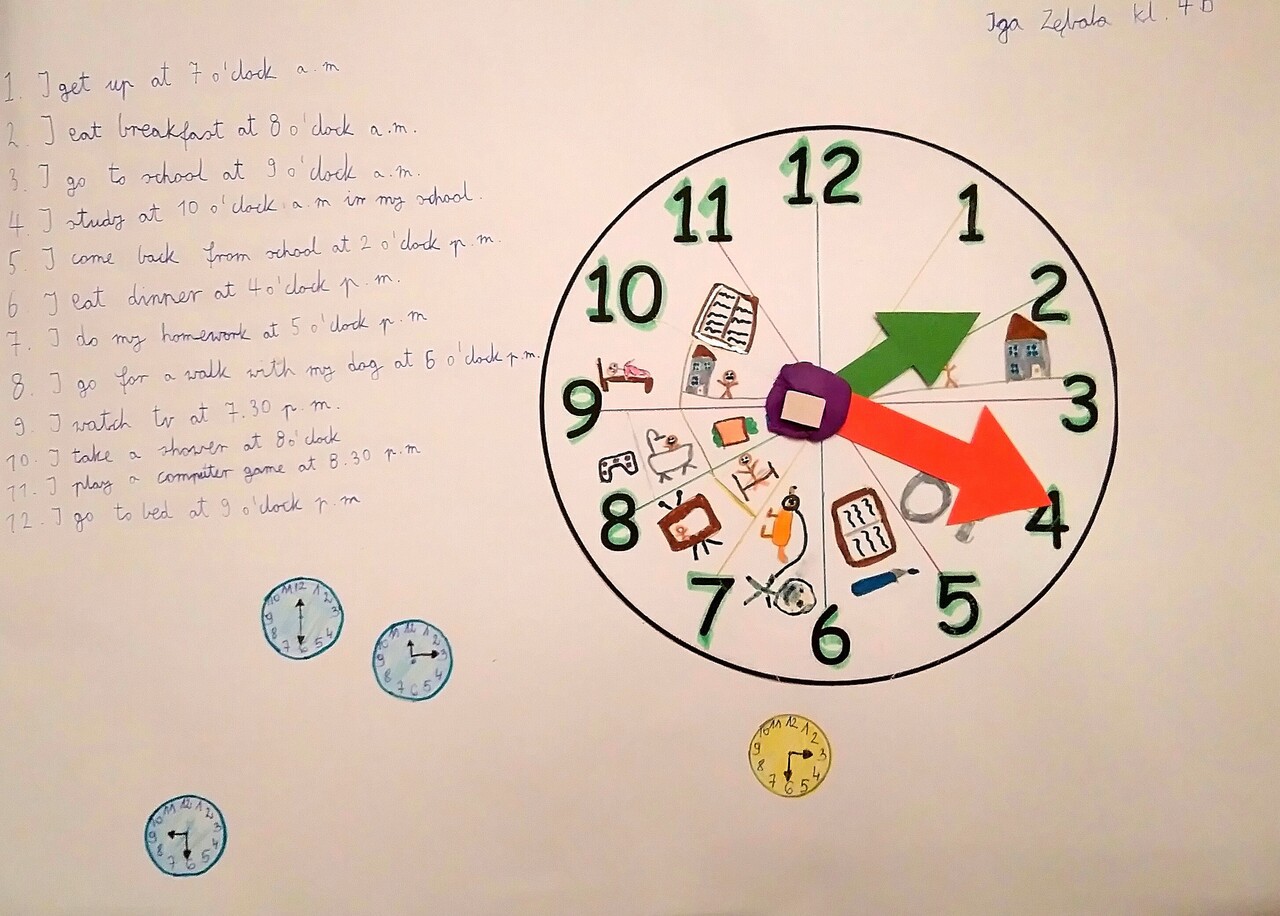 Iga Zębala kl. 4B
1. I get up at 7 o'clock a.m
2. I eat breakfast at 8 o'clock a.m.
3. I go to school at 9 o'clock a.m.
4. I study at 10 o'clock a.m in my school.
5. I come back from school at 2 o'clock p.m.
6 I eat dinner at 4 o'clock p.m.
7. I do my homework at 5 o'clock p.m
8. I go for a walk with my dog at 6 o'clock p.m.
9. I watch tv at 7.30 p.m.
10. I take a shower at 8 o'clock
11. I play a computer game at 8.30 p.m
12. I go to bed at 9 o'clock p.m
12
1
2
3
4
5
6
7
8
9
10
11
12 1 2 3 4 5 6 7 8 9 10 11
12 1 2 3 4 5 6 7 8 9 10 11
12 1 2 3 4 5 6 7 8 9 10 11
12 1 2 3 4 5 6 7 8 9 10 11